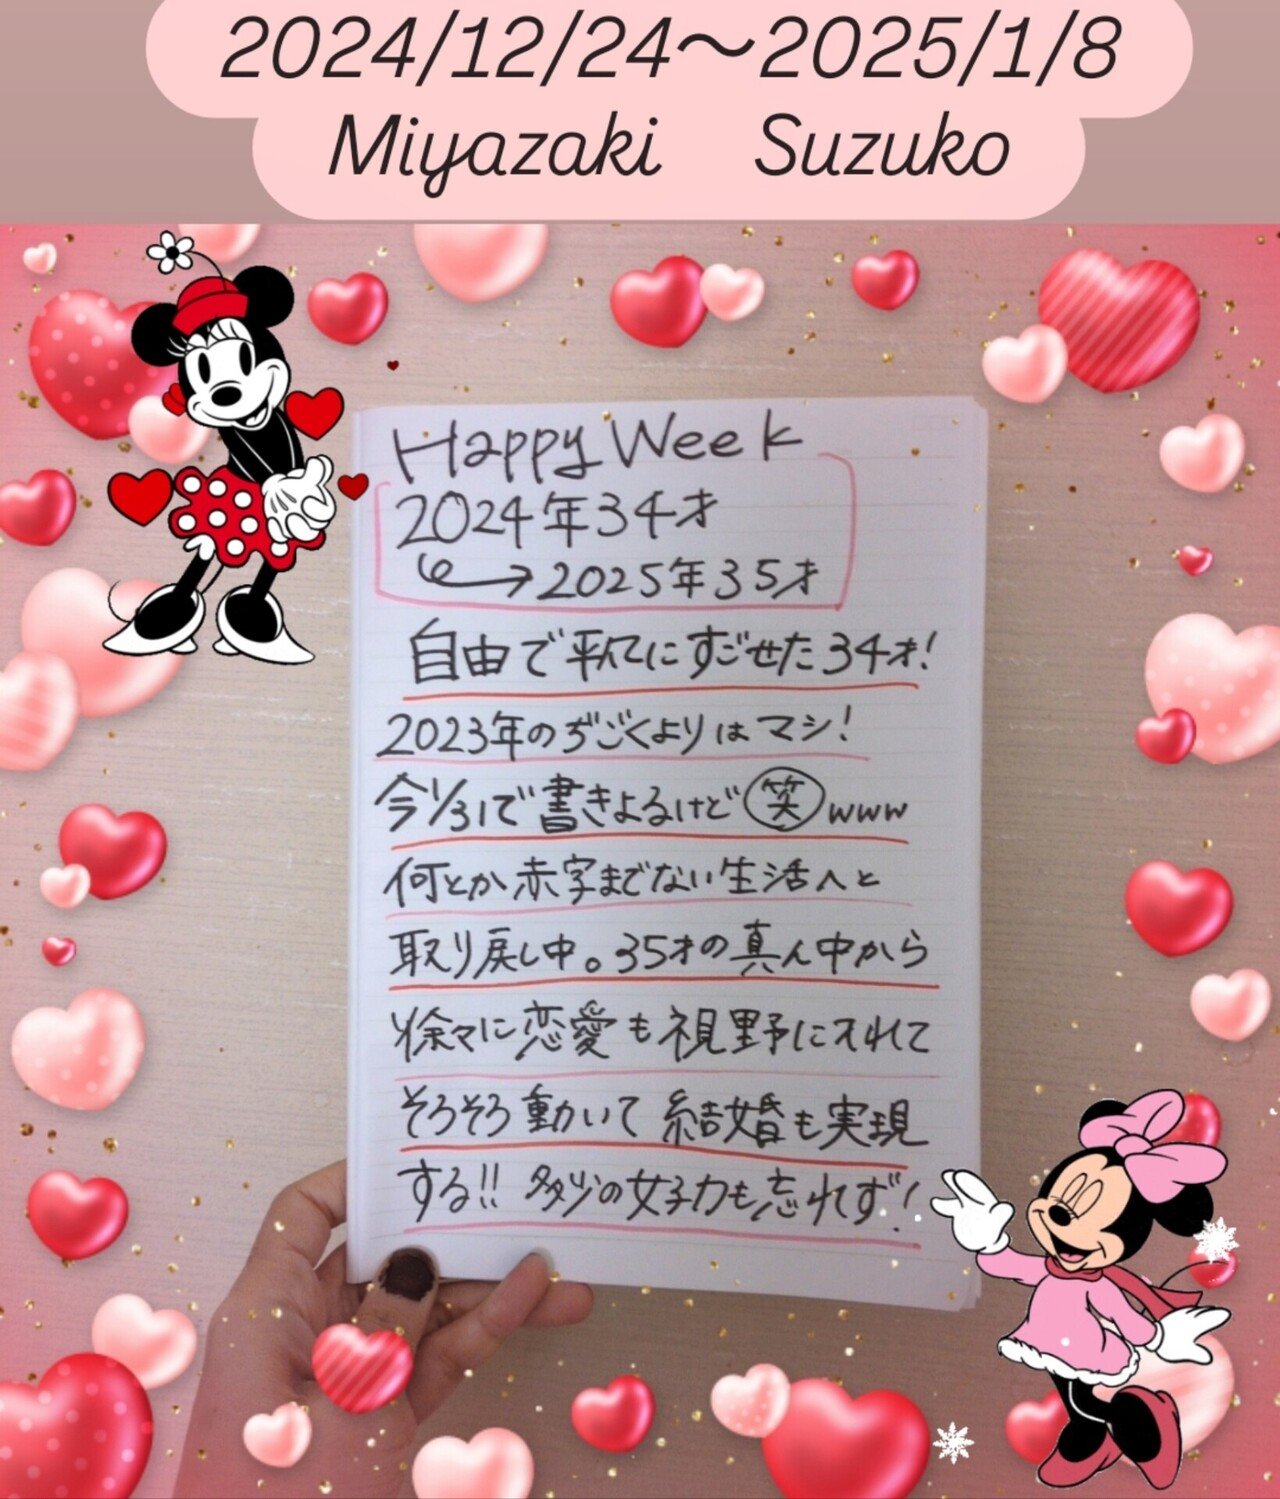 2024/12/24～2025/1/8
Miyazaki Suzuko
Happy Week
2024年34才
2025年35才
自由で平和にすごせた34才!
2023年のぢごくよりはマシ!
今1/31で書きよるけど笑www
何とか赤字までない生活へと
取り戻し中。35才の真ん中から
徐々に恋愛も視野に入れて
そろそろ動いて結婚も実現
する!!多少の女子力も忘れず!